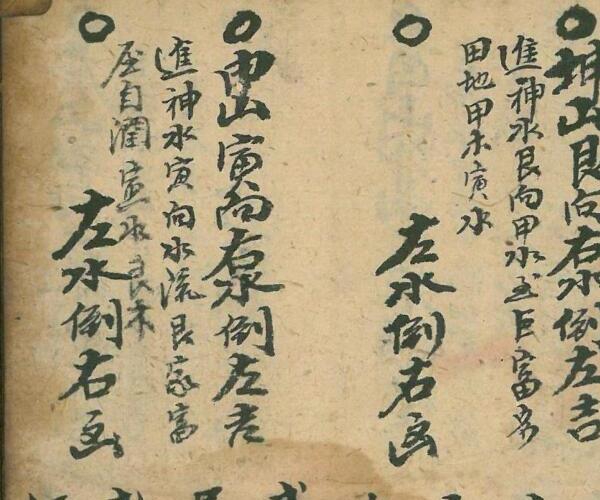 坤山艮向右水倒左吉
進神水艮向甲水至巨富多
田地甲木寅水
左水倒右凶
申山寅向右水倒左吉
進神水寅向水流艮家富
屋自潤寅水艮木
左水倒右凶